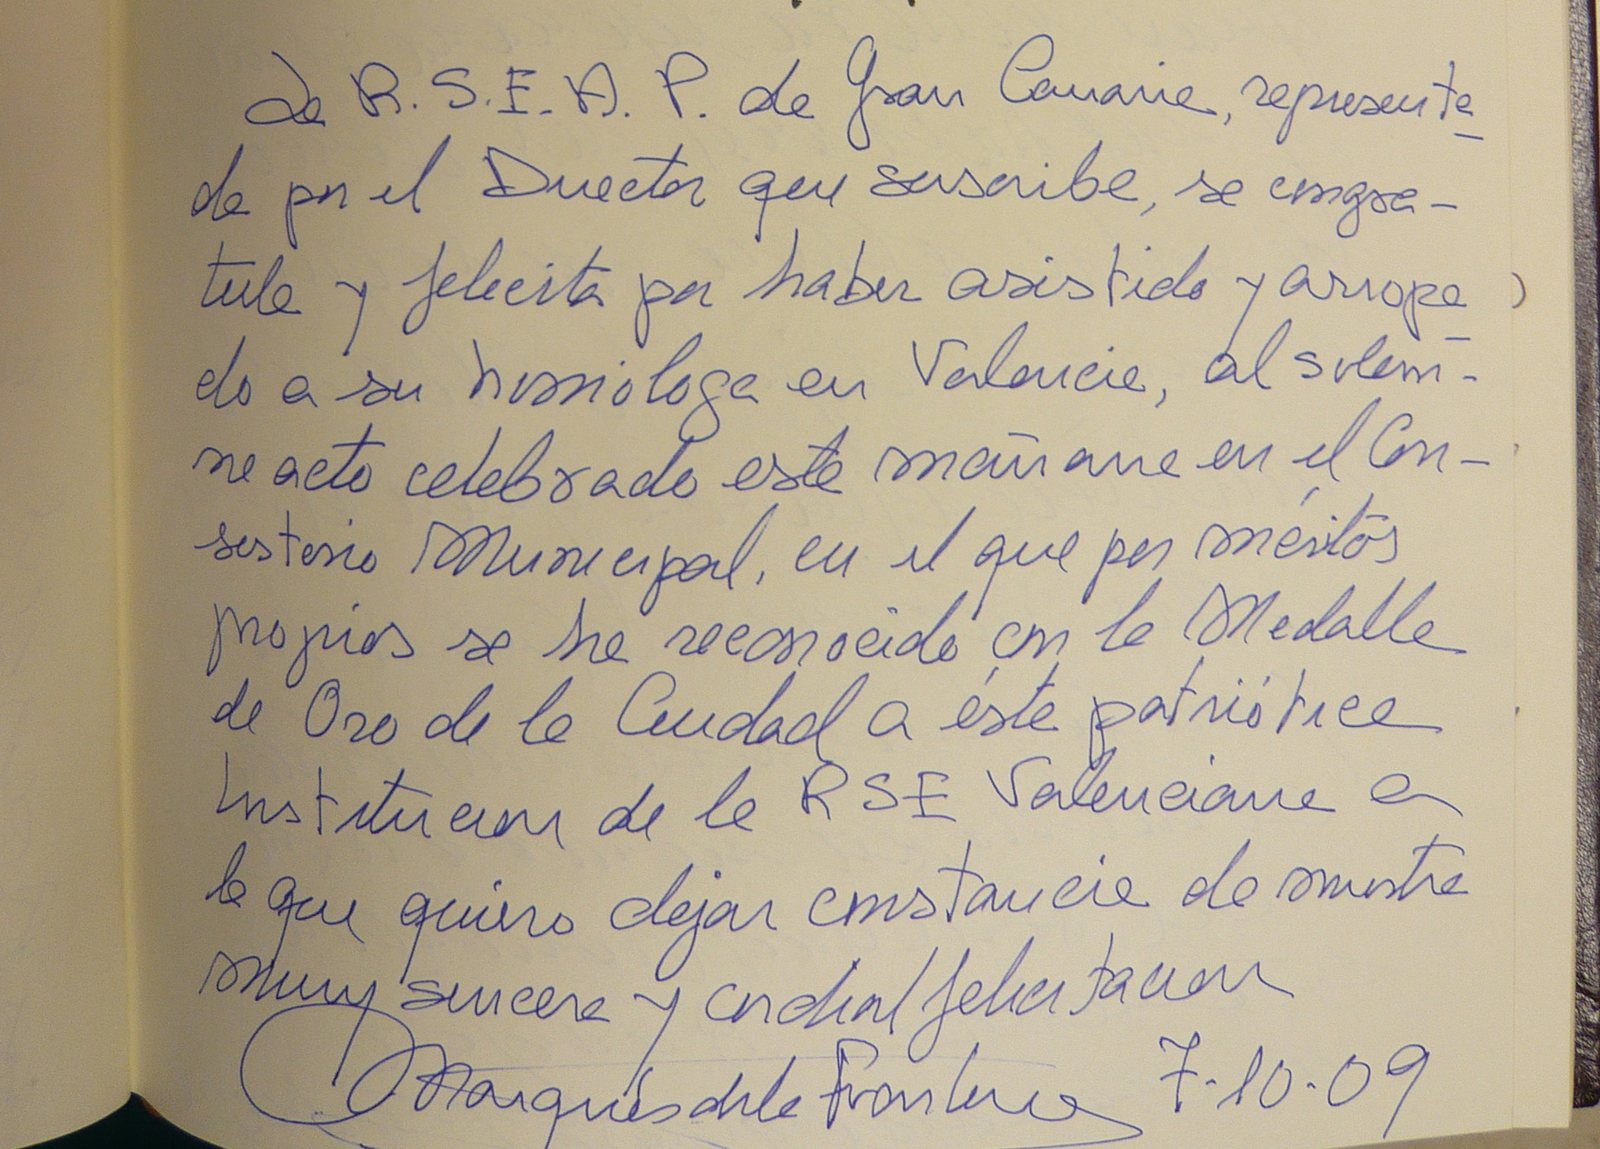 La R.S.E.A.P. de Gran Canaria, representa-
da por el Director que suscribe, se congra-
tula y felicita por haber asistido y arropa-
do a su homóloga en Valencia, al solem-
ne acto celebrado esta mañana en el Con-
sistorio Municipal, en el que por méritos
propios se ha reconocido con la Medalla
de Oro de la Ciudad a ésta patriótica
Institucion de la RSE Valenciana a
la que quiero dejar constancia de nuestra
muy sincera y cordial felicitacion
Marqués de la Frontera 7-10-09